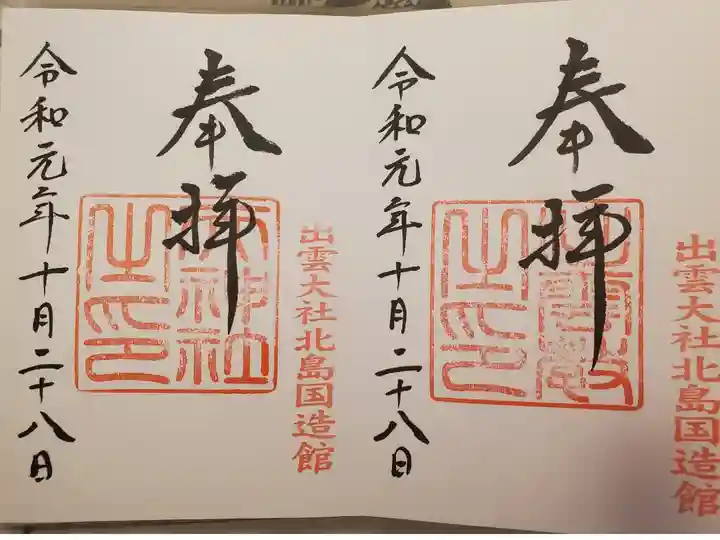 奉拝
出雲大社北島国造館
令和元年十月二十八日
奉拝
出雲大社北島国造館
令和元年十月二十八日